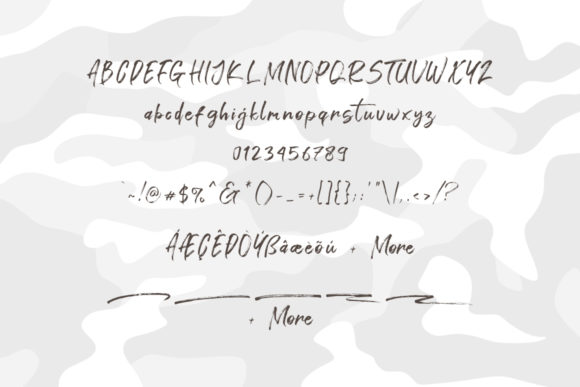 ABCDEFGHIJKLMNOPQRSTUVWXYZ
abcdefghijklmnopqrstuvwxyz
0123456789
`~!@#$%^&*()-_=+[]{};:'"\|,.<>/?
ÁÆÇÊÐÒÝßâæèõú + More
+ More